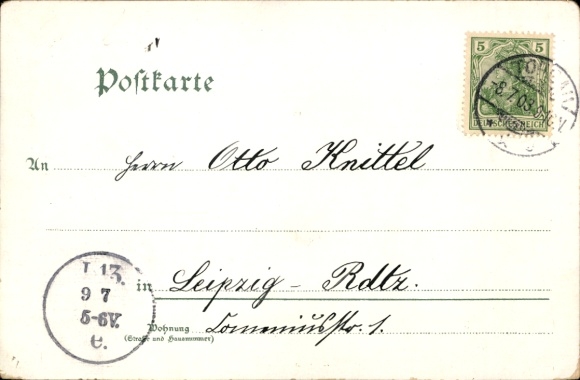 Postkarte
5 5
DEUTSCHES REICH
-8.7.03.
An Herrn Otto Knittel
in Leipzig - Rdtz.
Wohnung Comeniusstr. 1.
(Straße und Hausnummer)
L 13.
9 7
5-6V.
e.